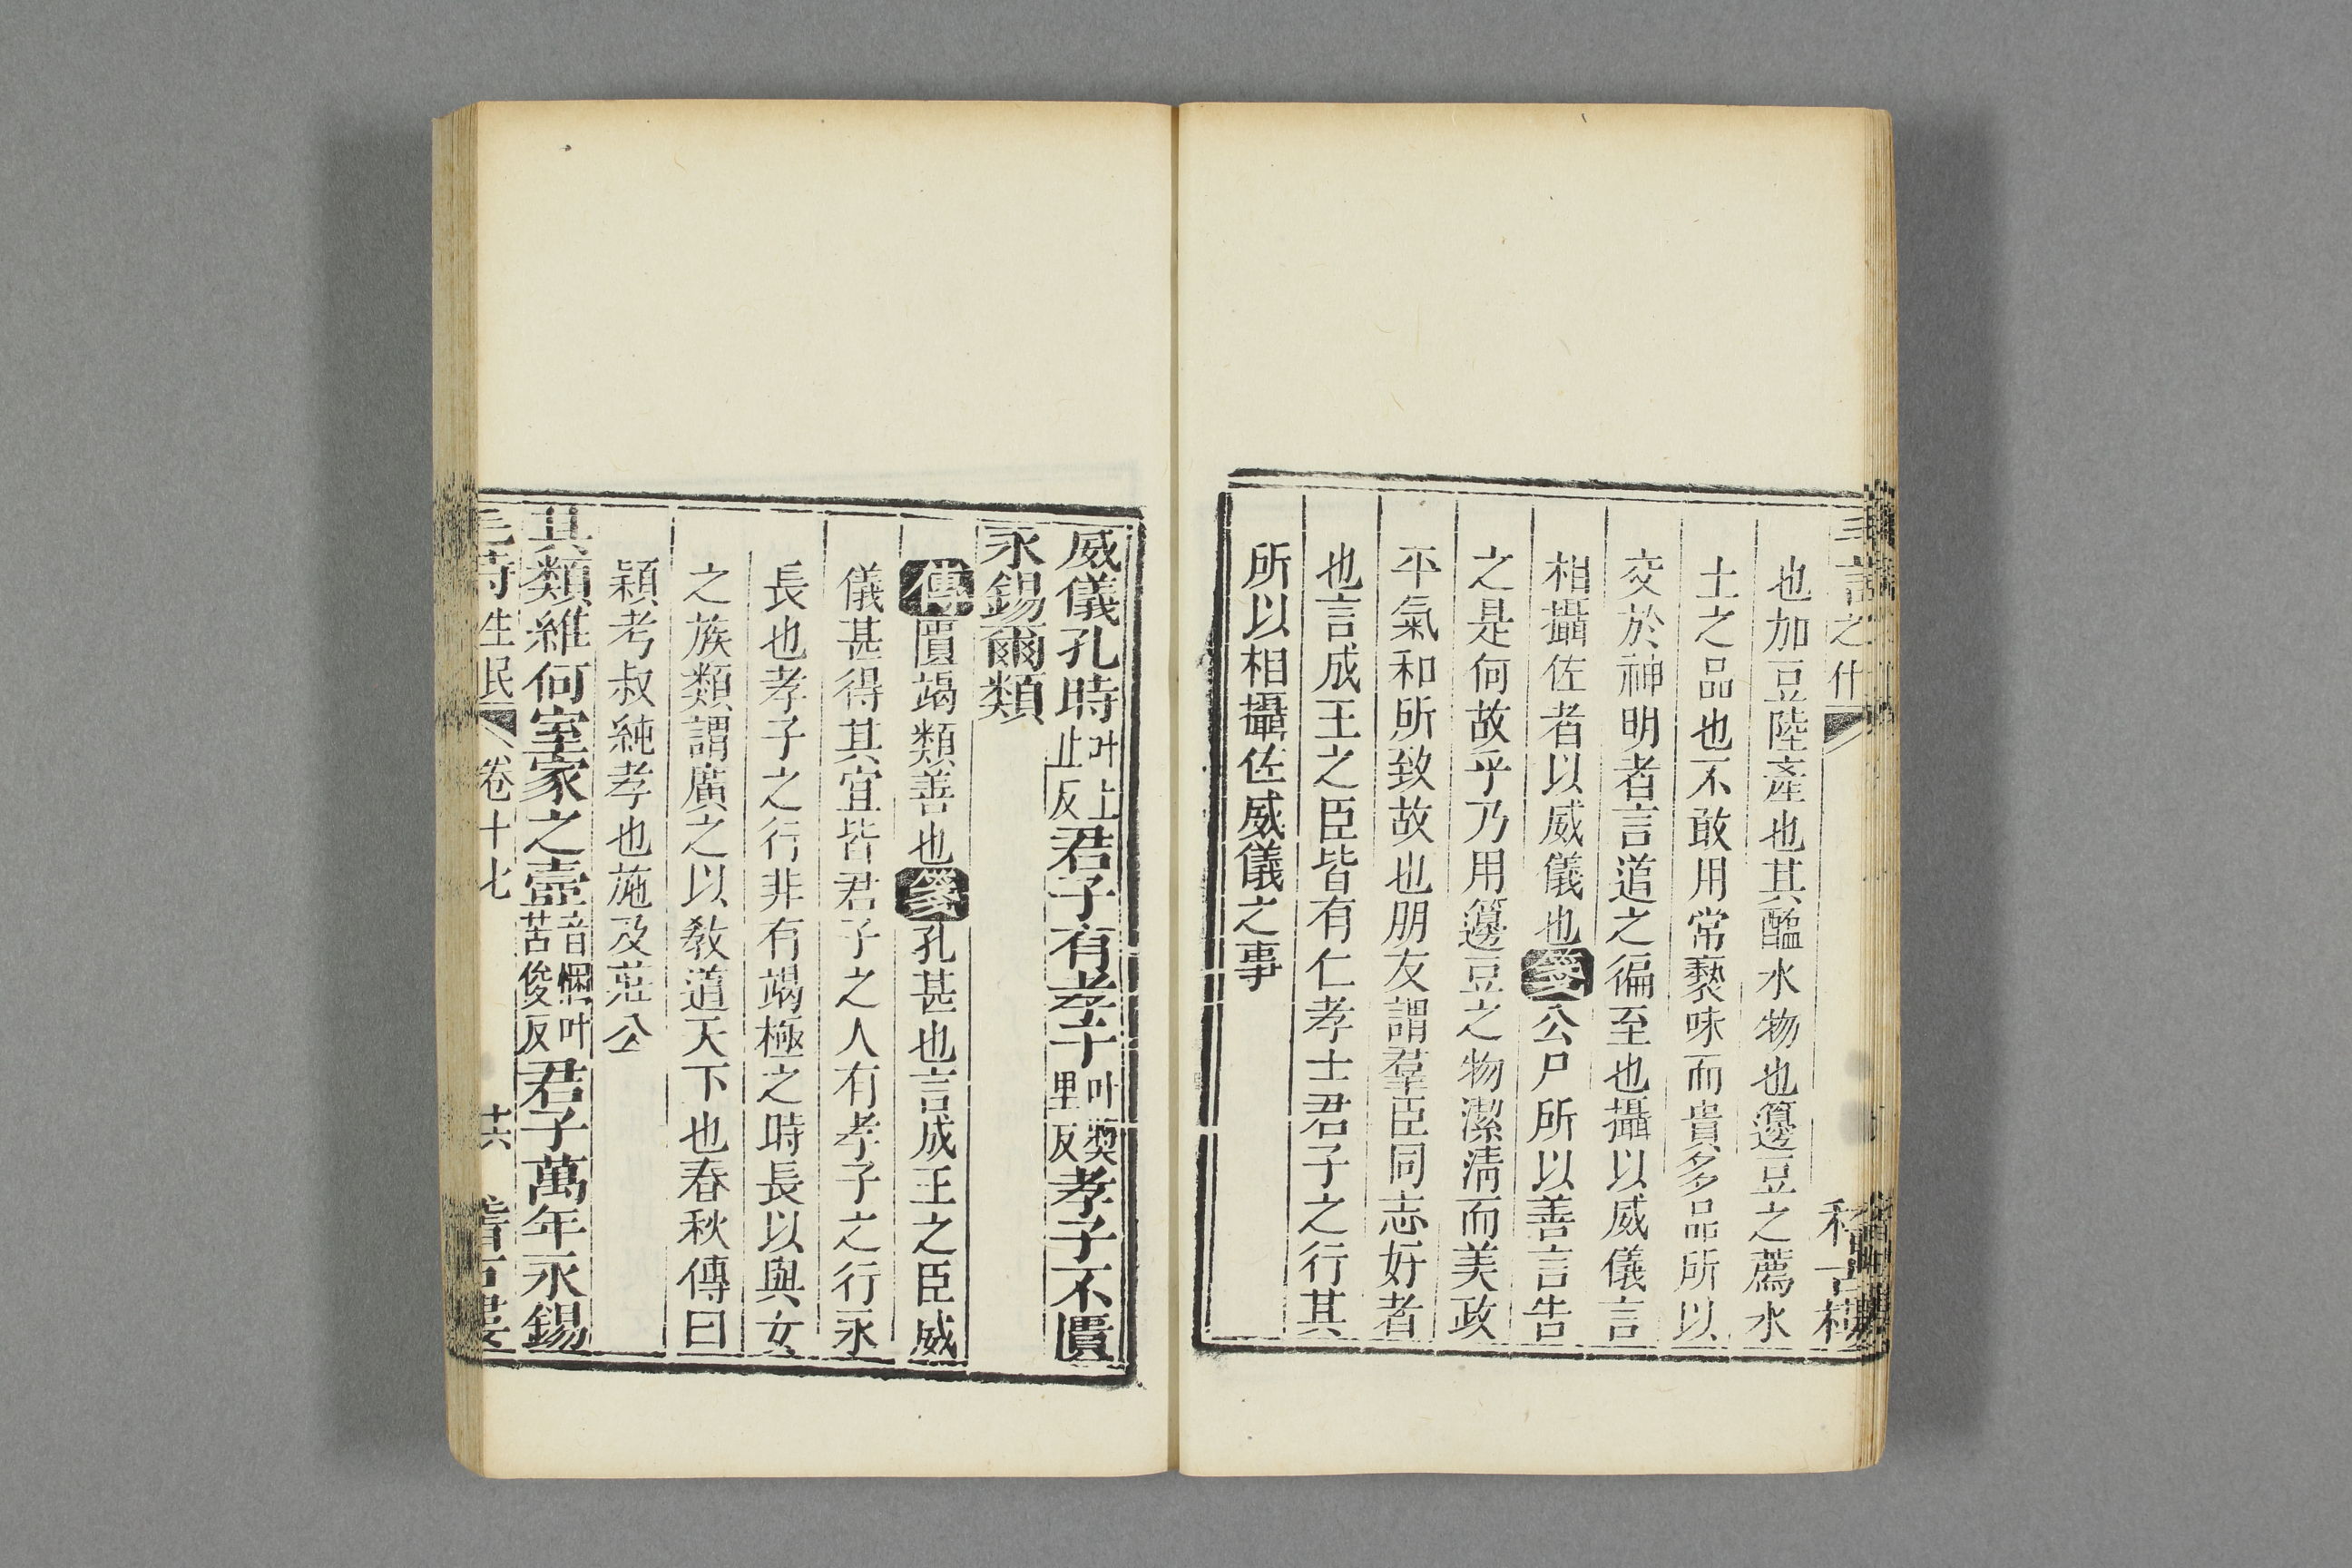 之什
也加豆陸產也其醢水物也籩豆之薦水
土之品也不敢用常褻味而貴多品所以
交於神明者言道之徧至也攝以威儀言
相攝佐者以威儀也箋公尸所以善言告
之是何故乎乃用籩豆之物潔淸而美政
平氣和所致故也朋友謂羣臣同志好者
也言成王之臣皆有仁孝士君子之行其
所以相攝佐威儀之事
威儀孔時叶上止反君子有孝子叶奬里反孝子不匱
永錫爾類
傳匱竭類善也箋孔甚也言成王之臣威
儀甚得其宜皆君子之人有孝子之行永
長也孝子之行非有竭極之時長以與女
之族類謂廣之以敎道天下也春秋傳曰
潁考叔純孝也施及莊公
其類維何室家之壼音悃叶苦俊反君子萬年永錫
毛詩生民 卷十七 廿六